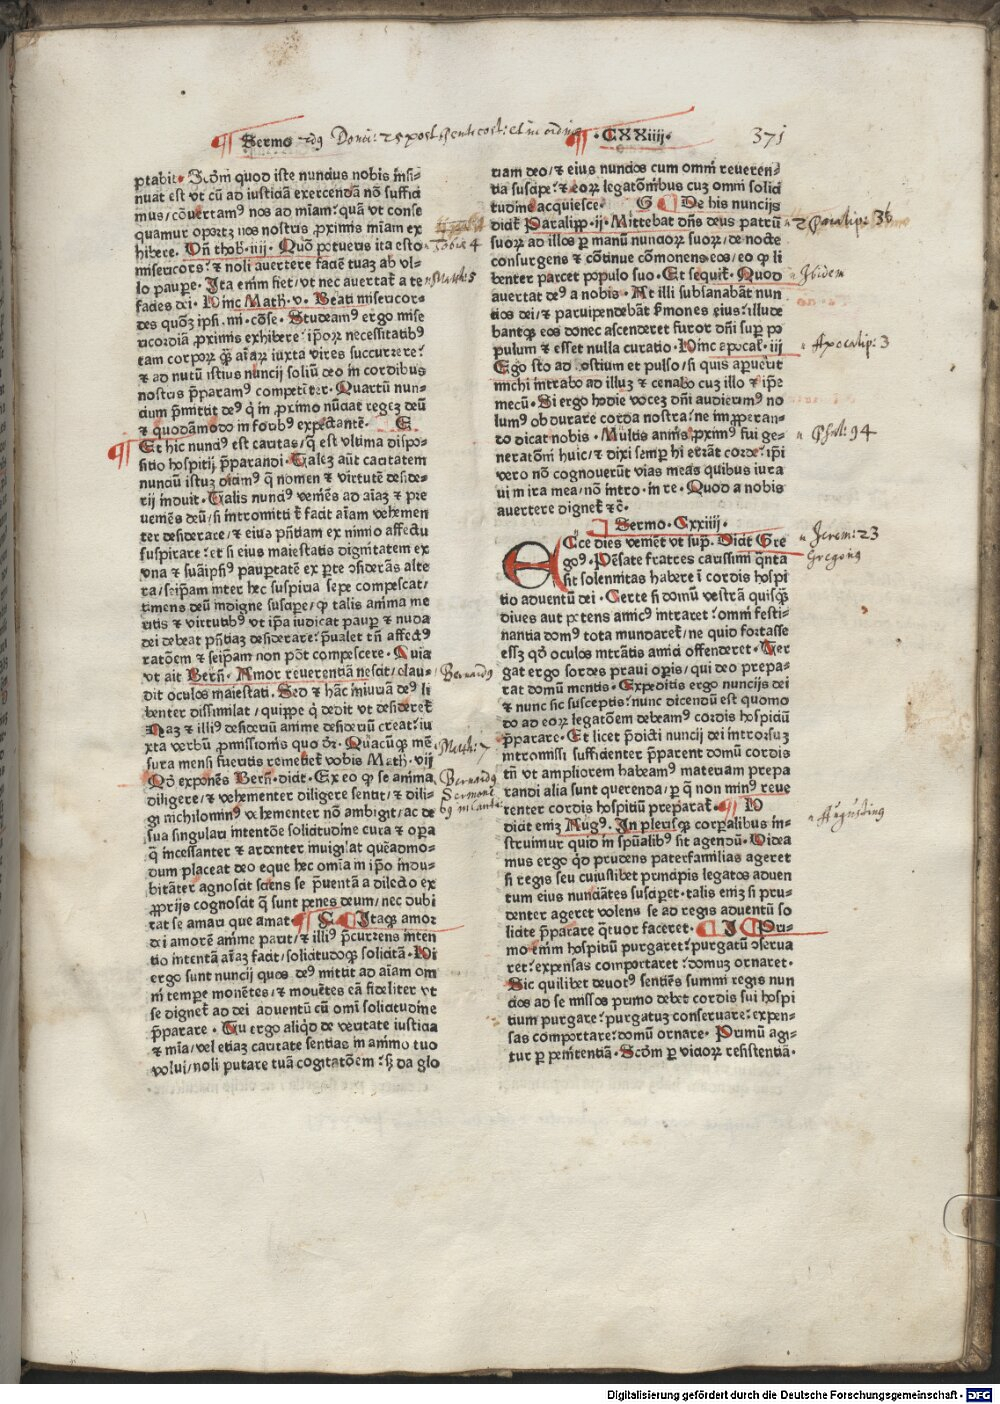 Sermo Doni: 25 post Pentecost: et in ordine · CXXiiij · 371
ꝑtabit· Itō̄ꝫ quod iste nuncius nobis insi-
nuat est vt cū ad iusticiā exercendā nō suffici
mus/cōuertamꝰ nos ad miam: quā vt conse
quamur oportꝫ nos nostris ꝓximis miam ex
hibere. Vn̄ thob·iiij· Quō potueris ita esto
misericors: ⁊ noli auertere faciē tuaꝫ ab vl-
lo paupe. Ita enim fiet/vt nec auertat̄ a te
facies dei· Hinc Math·v· Beati misericor-
des quōꝫ ipsi·mi·cōse· Studeamꝰ ergo mise
ricordiā ꝓximis exhibere: ipsoꝝ necessitatibꝰ
tam corpoꝝ ꝙ̄ aīaꝝ iuxta vires succurrere:
⁊ ad nutū istius nuncij soliū deo in cordibus
nostris p̄param competēter· Quartū nun-
cium p̄mittit deꝰ q̄ in ꝓximo nūciat regeꝫ deū
⁊ quodāmodo in foribꝰ expectantē· E
Et hic nunciꝰ est caritas/q̄ est vltima dispo-
sitio hospitij p̄parandi· Taleꝫ aūt caritatem
nunciū istuꝫ diamꝰ q̄ nomen ⁊ virtutē deside-
rij induit· Talis nunciꝰ vemēs ad aīaꝫ ⁊ pre
uemēs deū/si intromitti t̄ facit aīam vehemen
ter desiderare/⁊ eius pn̄tiam ex nimio affectu
suspirare: et si eius maiestatis dignitatem ex
vna ⁊ suāipsiꝰ paupertatē ex ꝑte ɔsiderās alte
ra/seipsam inter hec suspiria sepe compescat/
timens deū indigne suscipe/ꝙ talis anima me
ritis ⁊ virtutibꝰ vt ip̄a iudicat paup ⁊ nuda
dei debeat pn̄tiaꝫ desiderare: p̄ualet tn̄ affectꝰ
ratōem ⁊ seipsam non pōt compescere· Quia
vt ait Bern̄· Amor reuerentiā nescit/clau-
dit oculos maiestati· Sed ⁊ hāc iniuriā deꝰ li
benter dissimilat/quippe q̄ dedit vt desideret̄
Naꝫ ⁊ illiꝰ desideriū anime desideriū creat: iu
xta verbū ꝓmissionis quo dr̄· Quacūqꝫ mē
sura mensi fueritis remetiet̄ vobis Math·vij
Qd̄ exponēs Bern̄·dicit· Ex eo ꝙ se anima
diligere/⁊ vehementer diligere sentit/⁊ dili-
gi nichilominꝰ vehementer nō ambigit/ac de
sua singulari intentōe solicitudine cura ⁊ opera
q̄ incessanter ⁊ ardenter inuigilat quēadmo-
dum placeat deo eque hec omia in ip̄o indu-
bitāter agnoscit sciens se p̄uentā a dilecto ex
ꝓprijs cognoscit q̄ sunt penes deum/nec dubi
tat se amari que amat F Itaqꝫ amor
dei amorē anime parit/⁊ illiꝰ p̄currens inten
tio intentā aīaꝫ facit/solicitudoqꝫ solicitā· Hi
ergo sunt nuncij quos deꝰ mittit ad aīam om
ni tempe monētes/⁊ mouētes eā fideliter vt
se dignet̄ ad dei aduentū cū omi solicitudine
p̄parare· Tu ergo aliqd̄ de veritate iusticia
⁊ mia/vel etiaꝫ caritate sentias in animo tuo
volui/noli putare tuā cogitatōem: sꝫ da glo
riam deo/⁊ eius nuncios cum omni reueren-
tia suscipe: ⁊ eoꝝ legatōnibus cuꝫ omni solici
tudine acquiesce· G De his nuncijs
dicit̄ Paralipp·ij· Mittebat dn̄s deus patrū
suoꝝ ad illos per manū nuncioꝝ suoꝝ/de nocte
consurgens ⁊ cōtinue cōmonens eos/eo ꝙ li
benter parcet populo suo· Et sequit̄· Quod
auertat deꝰ a nobis· At illi subsanabāt nun
cios dei/⁊ paruipendebāt sermones eius: illude
bantqꝫ eos donec ascenderet furor dn̄i sup po
pulum ⁊ esset nulla curatio· Hinc apocat̄·iij
Ego sto ad ostium et pulso/si quis aperuerit
michi intrabo ad illuꝫ ⁊ cenabo cuꝫ illo ⁊ ip̄e
mecū· Si ergo hodie voceꝫ dn̄i audierimꝰ no
lumꝰ obdurare corda nostra: ne imꝓperan-
to dicat nobis· Multis annis ꝓximꝰ fui ge-
neratōni huic/⁊ dixi semꝑ hi errāt corde: ip̄i
vero nō cognouerūt vias meas quibus iura
ui in ira mea/nō intro·in re· Quod a nobis
auertere dignet̄ ⁊c̄·
Sermo· Cxxiiij·
ECce dies veniēt vt sup̄· Dicit Gre
goꝰ· Pēsate fratres carissimi q̄nta
sit solennitas habere ī cordis hospi
tio aduentū dei· Certe si domū vestrā quisqꝫ
diues aut potens amicꝰ intraret: omni festi-
nantia domꝰ tota mundaret̄/ne quid fortasse
esseꝫ qd̄ oculos intrātis amici offenderet· Ter
gat ergo sordes praui operis/qui deo prepa-
rat domū mentis· Expeditis ergo nuncijs dei
⁊ nunc sic susceptis: nunc dicendū est quomo
do ad eoꝝ legatōem debeamꝰ cordis hospiciū
p̄parare· Et licet p̄dicti nuncij dei introrsuꝫ
intromissi sufficienter p̄parent domū cordis
tn̄ vt ampliorem habeamꝰ materiam prepa
randi alia sunt querenda/per q̄ non minꝰ reue
renter cordis hospitiū preparat̄· H
dicit enīꝫ Augꝰ· In plerisqꝫ corpalibus in-
struimur quid in spūalibꝰ sit agendū· Videa
mus ergo qd̄ prudens paterfamilias ageret
si regis seu cuiuslibet principis legatos aduen
tum eius nunciātes susciperet· talis enīꝫ si pru-
denter ageret volens se ad regis aduentū so
licite p̄parare q̄tuor faceret· I Pri-
mo enim hospitiū purgaret: purgatū ɔserua
ret: expensas comportaret: domuꝫ ornaret·
Sic quilibet deuotꝰ sentiēs summi regis nun
cios ad se missos primo debet cordis sui hospi
tium purgare: purgatuꝫ conseruare: expen-
sas comportare: domū ornare· Primū agi-
tur per penitentiā· Scdm per vicioꝝ resistentiā·
Tobie 4
Math: 5
Bernardꝰ
Math: 7
Bernardꝰ
Sermone
in Cantic
2 Paralip: 36
Ibidem
Apocalip: 3
Psal: 94
Jeremi: 23
Gregoriꝰ
Augustinꝰ
Digitalisierung gefördert durch die Deutsche Forschungsgemeinschaft - DFG